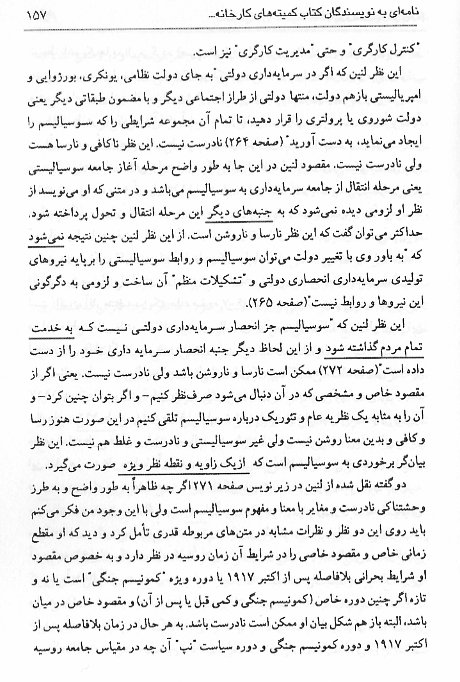 نامه‌ای به نویسندگان کتاب کمیته‌های کارخانه... ۱۵۷
"کنترل کارگری" و حتی "مدیریت کارگری" نیز است.
این نظر لنین که اگر در سرمایه‌داری دولتی "به جای دولت نظامی، یونکری، بورژوایی و
امپریالیستی بازهم دولت، منتها دولتی از طراز اجتماعی دیگر و با مضمون طبقاتی دیگر یعنی
دولت شوروی یا پرولتری را قرار دهید، تا تمام آن مجموعه شرایطی را که سوسیالیسم را
ایجاد می‌نماید، به دست آورید" (صفحه ۲۶۴) نادرست نیست. این نظر ناکافی و نارسا هست
ولی نادرست نیست. مقصود لنین در این جا به طور واضح مرحله آغاز جامعه سوسیالیستی
یعنی مرحله انتقال از جامعه سرمایه‌داری به سوسیالیسم می‌باشد و در متنی که او می‌نویسد از
نظر او لزومی دیده نمی‌شود که به جنبه‌های دیگر این مرحله انتقال و تحول پرداخته شود.
حداکثر می‌توان گفت که این نظر نارسا و ناروشن است. از این نظر لنین چنین نتیجه نمی‌شود
که "به باور وی با تغییر دولت می‌توان سوسیالیسم و روابط سوسیالیستی را برپایه نیروهای
تولیدی سرمایه‌داری انحصاری دولتی و "تشکیلات منظم" آن ساخت و لزومی به دگرگونی
این نیروها و روابط نیست"(صفحه ۲۶۵).
این نظر لنین که "سوسیالیسم جز انحصار سرمایه‌داری دولتی نیست که به خدمت
تمام مردم گذاشته شود و از این لحاظ دیگر جنبه انحصار سرمایه داری خود را از دست
داده است"(صفحه ۲۷۲) ممکن است نارسا و ناروشن باشد ولی نادرست نیست. یعنی اگر از
مقصود خاص و مشخصی که در آن دنبال می‌شود صرف‌نظر کنیم- و اگر بتوان چنین کرد-و
آن را به مثابه یک نظریه عام و تئوریک درباره سوسیالیسم تلقی کنیم در این صورت هنوز رسا
و کافی و بدین معنا روشن نیست ولی غیر سوسیالیستی و نادرست و غلط هم نیست. این نظر
بیان‌گر برخوردی به سوسیالیسم است که از یک زاویه و نقطه نظر ویژه صورت می‌گیرد.
دو گفته نقل شده از لنین در زیر نویس صفحه ۲۷۱ اگر چه ظاهراً به طور واضح و به طرز
وحشتناکی نادرست و مغایر با معنا و مفهوم سوسیالیسم است ولی با این وجود من فکر می‌کنم
باید روی این دو نظر و نظرات مشابه در متن‌های مربوطه قدری تأمل کرد و دید که او مقطع
زمانی خاص و مقصود خاصی را در شرایط آن زمان روسیه در نظر دارد و به خصوص مقصود
او شرایط بحرانی بلافاصله پس از اکتبر ۱۹۱۷ یا دوره ویژه "کمونیسم جنگی" است یا نه و
تازه اگر چنین دوره خاص (کمونیسم جنگی و کمی قبل یا پس از آن) و مقصود خاص در میان
باشد، البته باز هم شکل بیان او ممکن است نادرست باشد. به هر حال در زمان بلافاصله پس از
اکتبر ۱۹۱۷ و دوره کمونیسم جنگی و دوره سیاست "نپ" آن چه در مقیاس جامعه روسیه